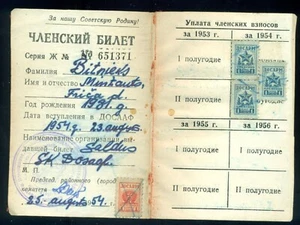 За нашу Советскую Родину!
ЧЛЕНСКИЙ БИЛЕТ
Серия Ж № № 651371
Фамилия Bitnieks
Имя и отчество
Год рождения 1931. g.
Дата вступления в ДОСААФ
1954 g. 23. augus.
Наименование организации
давшей билет Saldus
SK Dosaaf
М. П.
Председ. районного (город
комитета
25. augusts 54.
ДОСААФ
Уплата членских взносов
за 1953 г. за 1954 г.
I полугодие I полугодие
II полугодие
за 1955 г. за 1956 г.
I полугодие I полугодие
II полугодие II полугодие